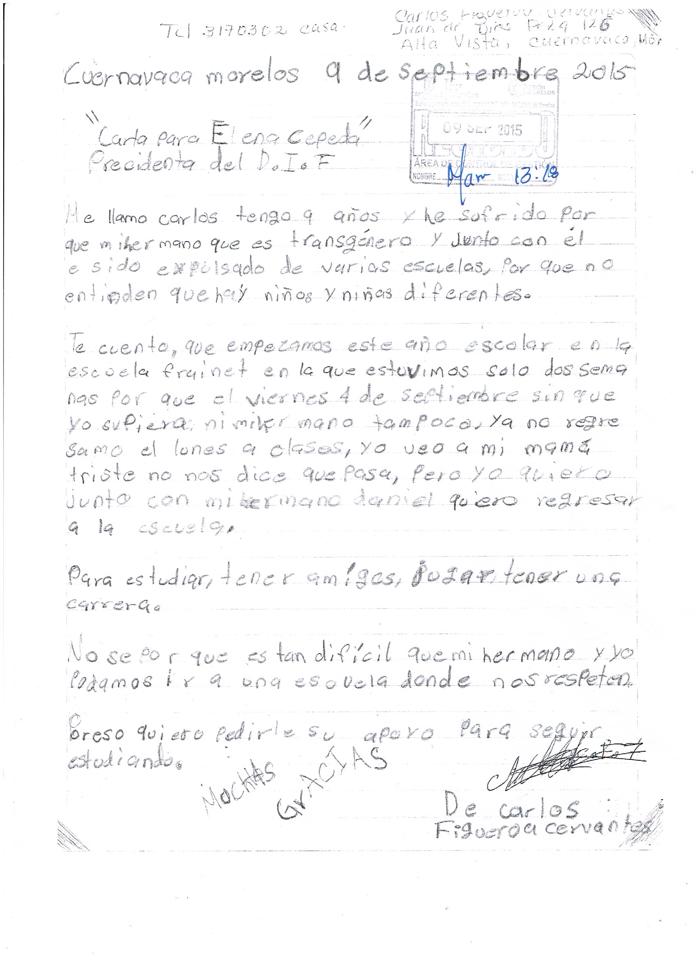 Tel 3170302 casa.
Carlos Figueroa Cervantes
Juan de Dios
126
Alta Vista, Cuernavaca, Mor
Cuernavaca morelos 9 de septiembre 2015
"Carta para Elena Cepeda"
Precidenta del D.I.F
09 SEP 2015
ÁREA DE
NOMBRE
13:18
Me llamo carlos tengo 9 años y he sufrido por
que mi hermano que es transgénero y junto con él
e sido expulsado de varias escuelas, por que no
entinden que hay niños y niñas diferentes.
Te cuento, que empezamos este año escolar en la
escuela frainet en la que estuvimos solo dos sema
nas por que el viernes 4 de septiembre sin que
yo supiera, ni mi hermano tampoco, ya no regre
samo el lunes a clases, yo veo a mi mamá
triste no nos dice que pasa, pero yo quiero
junto con mi hermano daniel quiero regresar
a la escuela.
Para estudiar, tener amigos, jugar, tener una
carrera.
No se por que es tan difícil que mi hermano y yo
podamos ir a una escuela donde nos respeten.
Por eso quiero pedirle su apoyo para seguir
estudiando.
MUCHAS
GrACIAS
De carlos
Figueroa cervantes